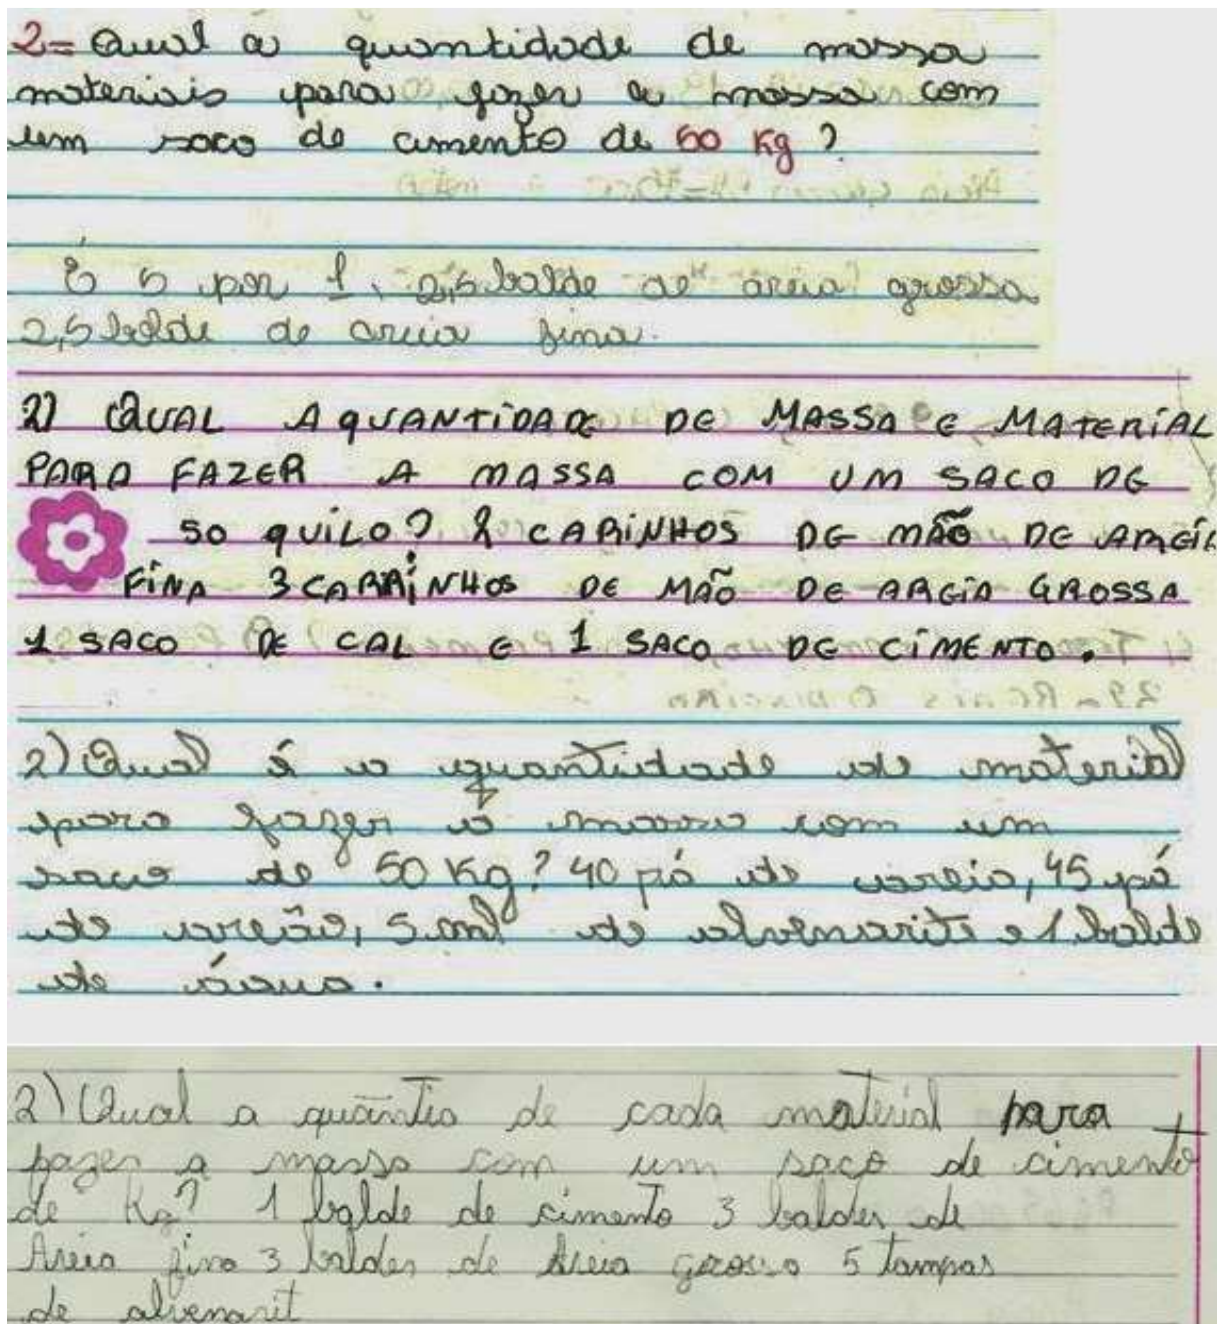 2= Qual a quantidade de massa
materiais para fazer a massa com
um saco de cimento de 50 Kg?
É 5 por 1, 2,5 balde de areia grossa
2,5 balde de areia fina.
2) QUAL A QUANTIDADE DE MASSA E MATERIAL
PARA FAZER A MASSA COM UM SACO DE
50 QUILO? 2 CARINHOS DE MÃO DE AREIA
FINA 3 CARRINHOS DE MÃO DE AREIA GROSSA
1 SACO DE CAL E 1 SACO DE CIMENTO.
2) Qual é a quantidade de material
para fazer a massa com um
saco de 50 Kg? 40 pá de areia, 45 pá
de areão, 5 ml de alvenarite e 1 balde
de água.
2) Qual a quântia de cada material para
fazer a massa com um saco de cimento
de Kg? 1 balde de cimento 3 baldes de
Areia fina 3 baldes de Areia grossa 5 tampas
de alvenarit